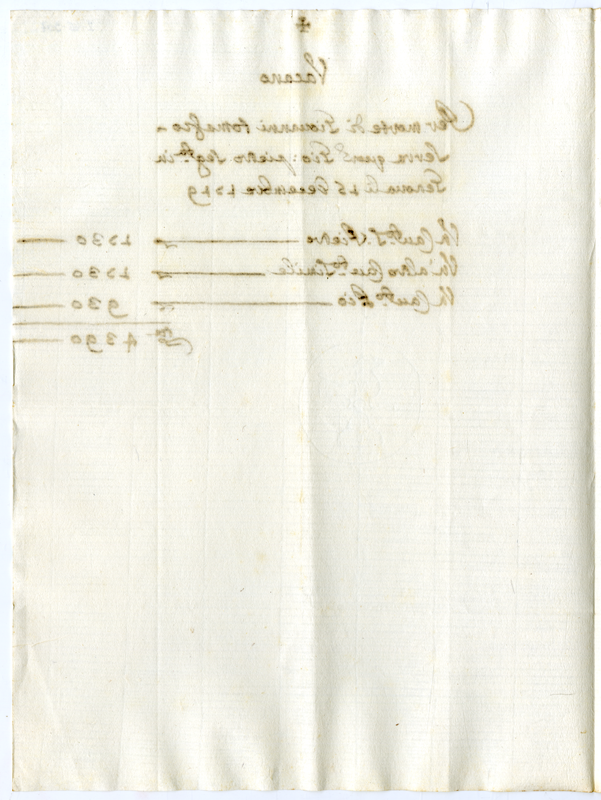 ✠
Vacano
Per morte di Giovanni tomaso
Serra quon.m Gio: pietro seg.ta in
Genova li 15 Decembre 1719
Un Cav.to S. Pietro — 1730 —
Un altro Cav.to Simile — 1730 —
Un Cav.to Pio — 930 —
4390 —